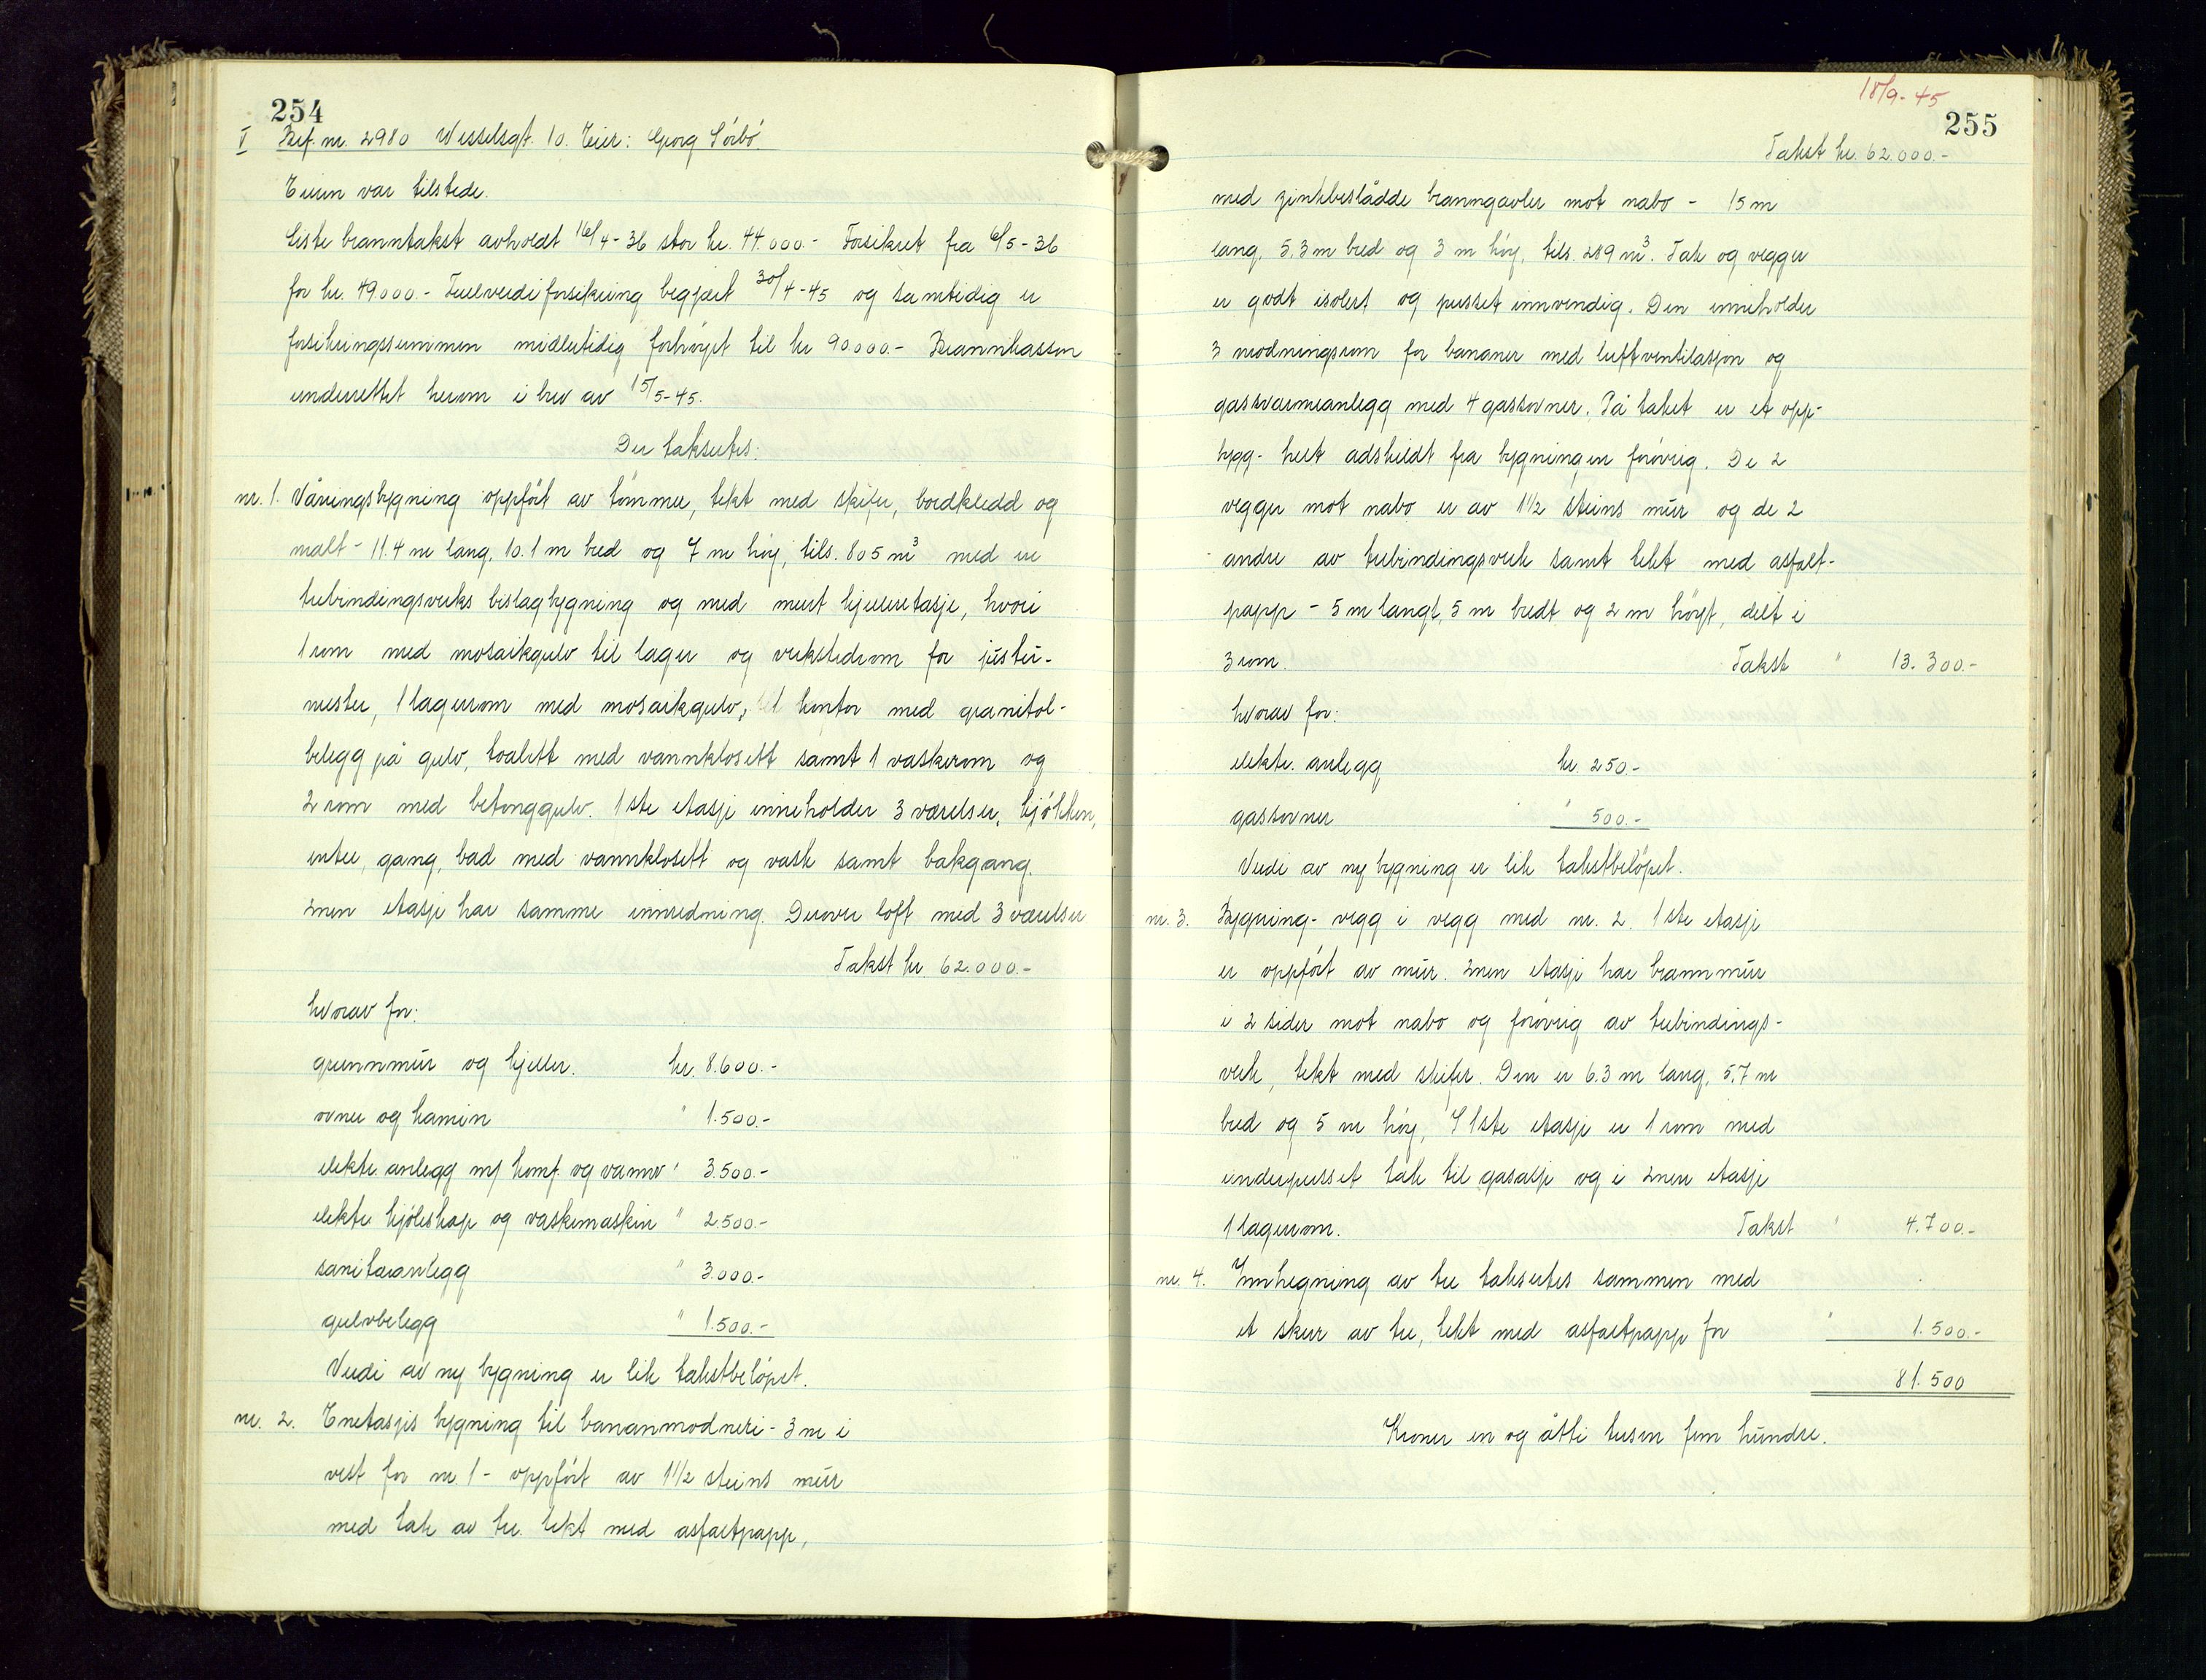 254
V Bref. nr. 2980 Wesselsgt. 10. Eier: Georg Sörbö.
Eieren var tilstede.
Siste branntakst avholdt 16/4-36 stor kr. 44.000.- Forsikret fra 6/5-36
for kr. 49.000.- Fullverdiforsikring begjært 30/4-45 og samtidig er
forsikringssummen midlertidig forhöyet til kr 90000.- Brannkassen
underrettet herom i brev av 15/5-45.
Der takseres:
nr. 1. Våningsbygning oppfört av tömmer, tekt med skifer, bordkledd og
malt - 11.4 m lang, 10.1 m bred og 7 m höy, tils. 805 m³ med en
trebindingsverks bislagbygning og med murt kjelleretasje, hvori
1 rom med mosaikgulv til lager og verkstedrom for juster-
mester, 1 lagerrom med mosaikgulv, 1 kontor med granitol-
belegg på gulv, toalett med vannklosett samt 1 vaskerom og
2 rom med betonggulv. 1ste etasje inneholder 3 værelser, kjökken,
entre, gang, bad med vannklosett og vask samt bakgang.
2nen etasje har samme innredning. Derover loft med 3 værelser
Takst kr. 62.000.-
hvorav for:
grunnmur og kjeller. kr. 8.600.-
ovner og kamin " 1.500.-
elektr. anlegg m/ komf. og varmv. " 3.500.-
elektr. kjöleskap og vaskemaskin " 2.500.-
sanitæranlegg " 3.000.-
gulvbelegg " 1.500.-
Verdi av ny bygning er lik takstbelöpet.
nr. 2. Enetasjes bygning til bananmodneri - 3 m i
vest for nr. 1 - oppfört av 1 1/2 steins mur
med tak av tre. tekt med asfaltpapp,
18/9-45
255
Takst kr. 62.000.-
med zinkbeslådde branngavler mot nabo - 15 m
lang, 5,3 m bred og 3 m höy, tils. 289 m³. Tak og vegger
er godt isolert og pusset innvendig. Den inneholder
3 modningsrom for bananer med luftventilasjon og
gassvarmeanlegg med 4 gassovner. På taket er et opp-
bygg- helt adskildt fra bygningen forövrig. De 2
vegger mot nabo er av 1 1/2 steins mur og de 2
andre av trebindingsverk samt tekt med asfalt-
papp - 5 m langt, 5 m bredt og 2 m höyt, delt i
3 rom. Takst " 13.300.-
hvorav for:
elektr. anlegg kr. 250.-
gassovner " 500.-
Verdi av ny bygning er lik takstbelöpet.
nr. 3. Bygning- vegg i vegg med nr. 2. 1ste etasje
er oppfört av mur. 2nen etasje har brannmur
i 2 sider mot nabo og forövrig av trebindings-
verk, tekt med skifer. Den er 6.3 m lang, 5.7 m
bred og 5 m höy, I 1ste etasje er 1 rom med
underpusset tak til garasje og i 2nen etasje
1 lagerrom. Takst " 4.700.-
nr. 4. Innhegning av tre takseres sammen med
et skur av tre, tekt med asfaltpapp for " 1.500.-
81.500
Kroner en og åtti tusen fem hundre.